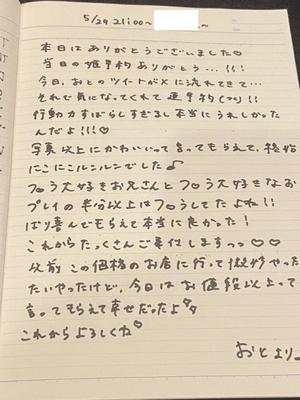 5/29 21:00~ ~
本日はありがとうございました♡
当日の姫予約ありがとう...!!
今日、おとのツイートがXに流れてきて...
それで気になってくれて速予約(ﾂ)!!
行動力すばらしすぎるし本当にうれしかった
んだよ!!!♡
写真以上にかわいいって言ってもらえて、終始
にこにこルンルンでした♪
フロう大好きお兄さんとフロう大好きなお
プレイの半分以上はフロうしてたよね!!
ばり喜んでもらえて本当に良かった!
これからたっくさんご奉仕しますっっ♡♡
以前この価格のお店に行って微妙やっ
たいやったけど、今日はお値段以上って
言ってもらえて幸せだったよ
これからよろしくね♡
おとより